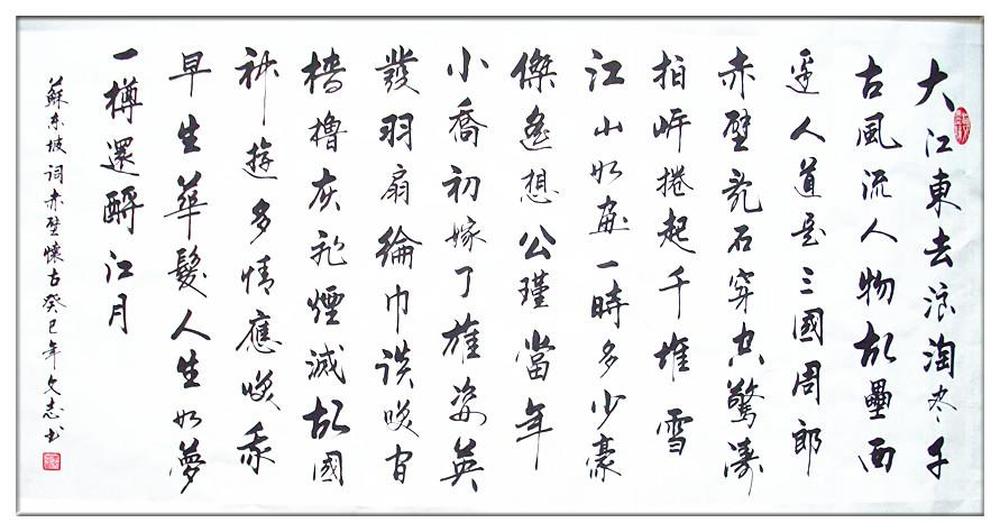 大江東去浪淘尽千
古風流人物故壘西
邊人道是三國周郎
赤壁亂石穿空驚濤
拍岸捲起千堆雪
江山如畫一時多少豪
傑遙想公瑾當年
小喬初嫁了雄姿英
發羽扇綸巾談笑间
檣櫓灰飛煙滅故國
神遊多情應笑我
早生華髮人生如夢
一樽還酹江月
蘇东坡詞赤壁懷古癸巳年文志书